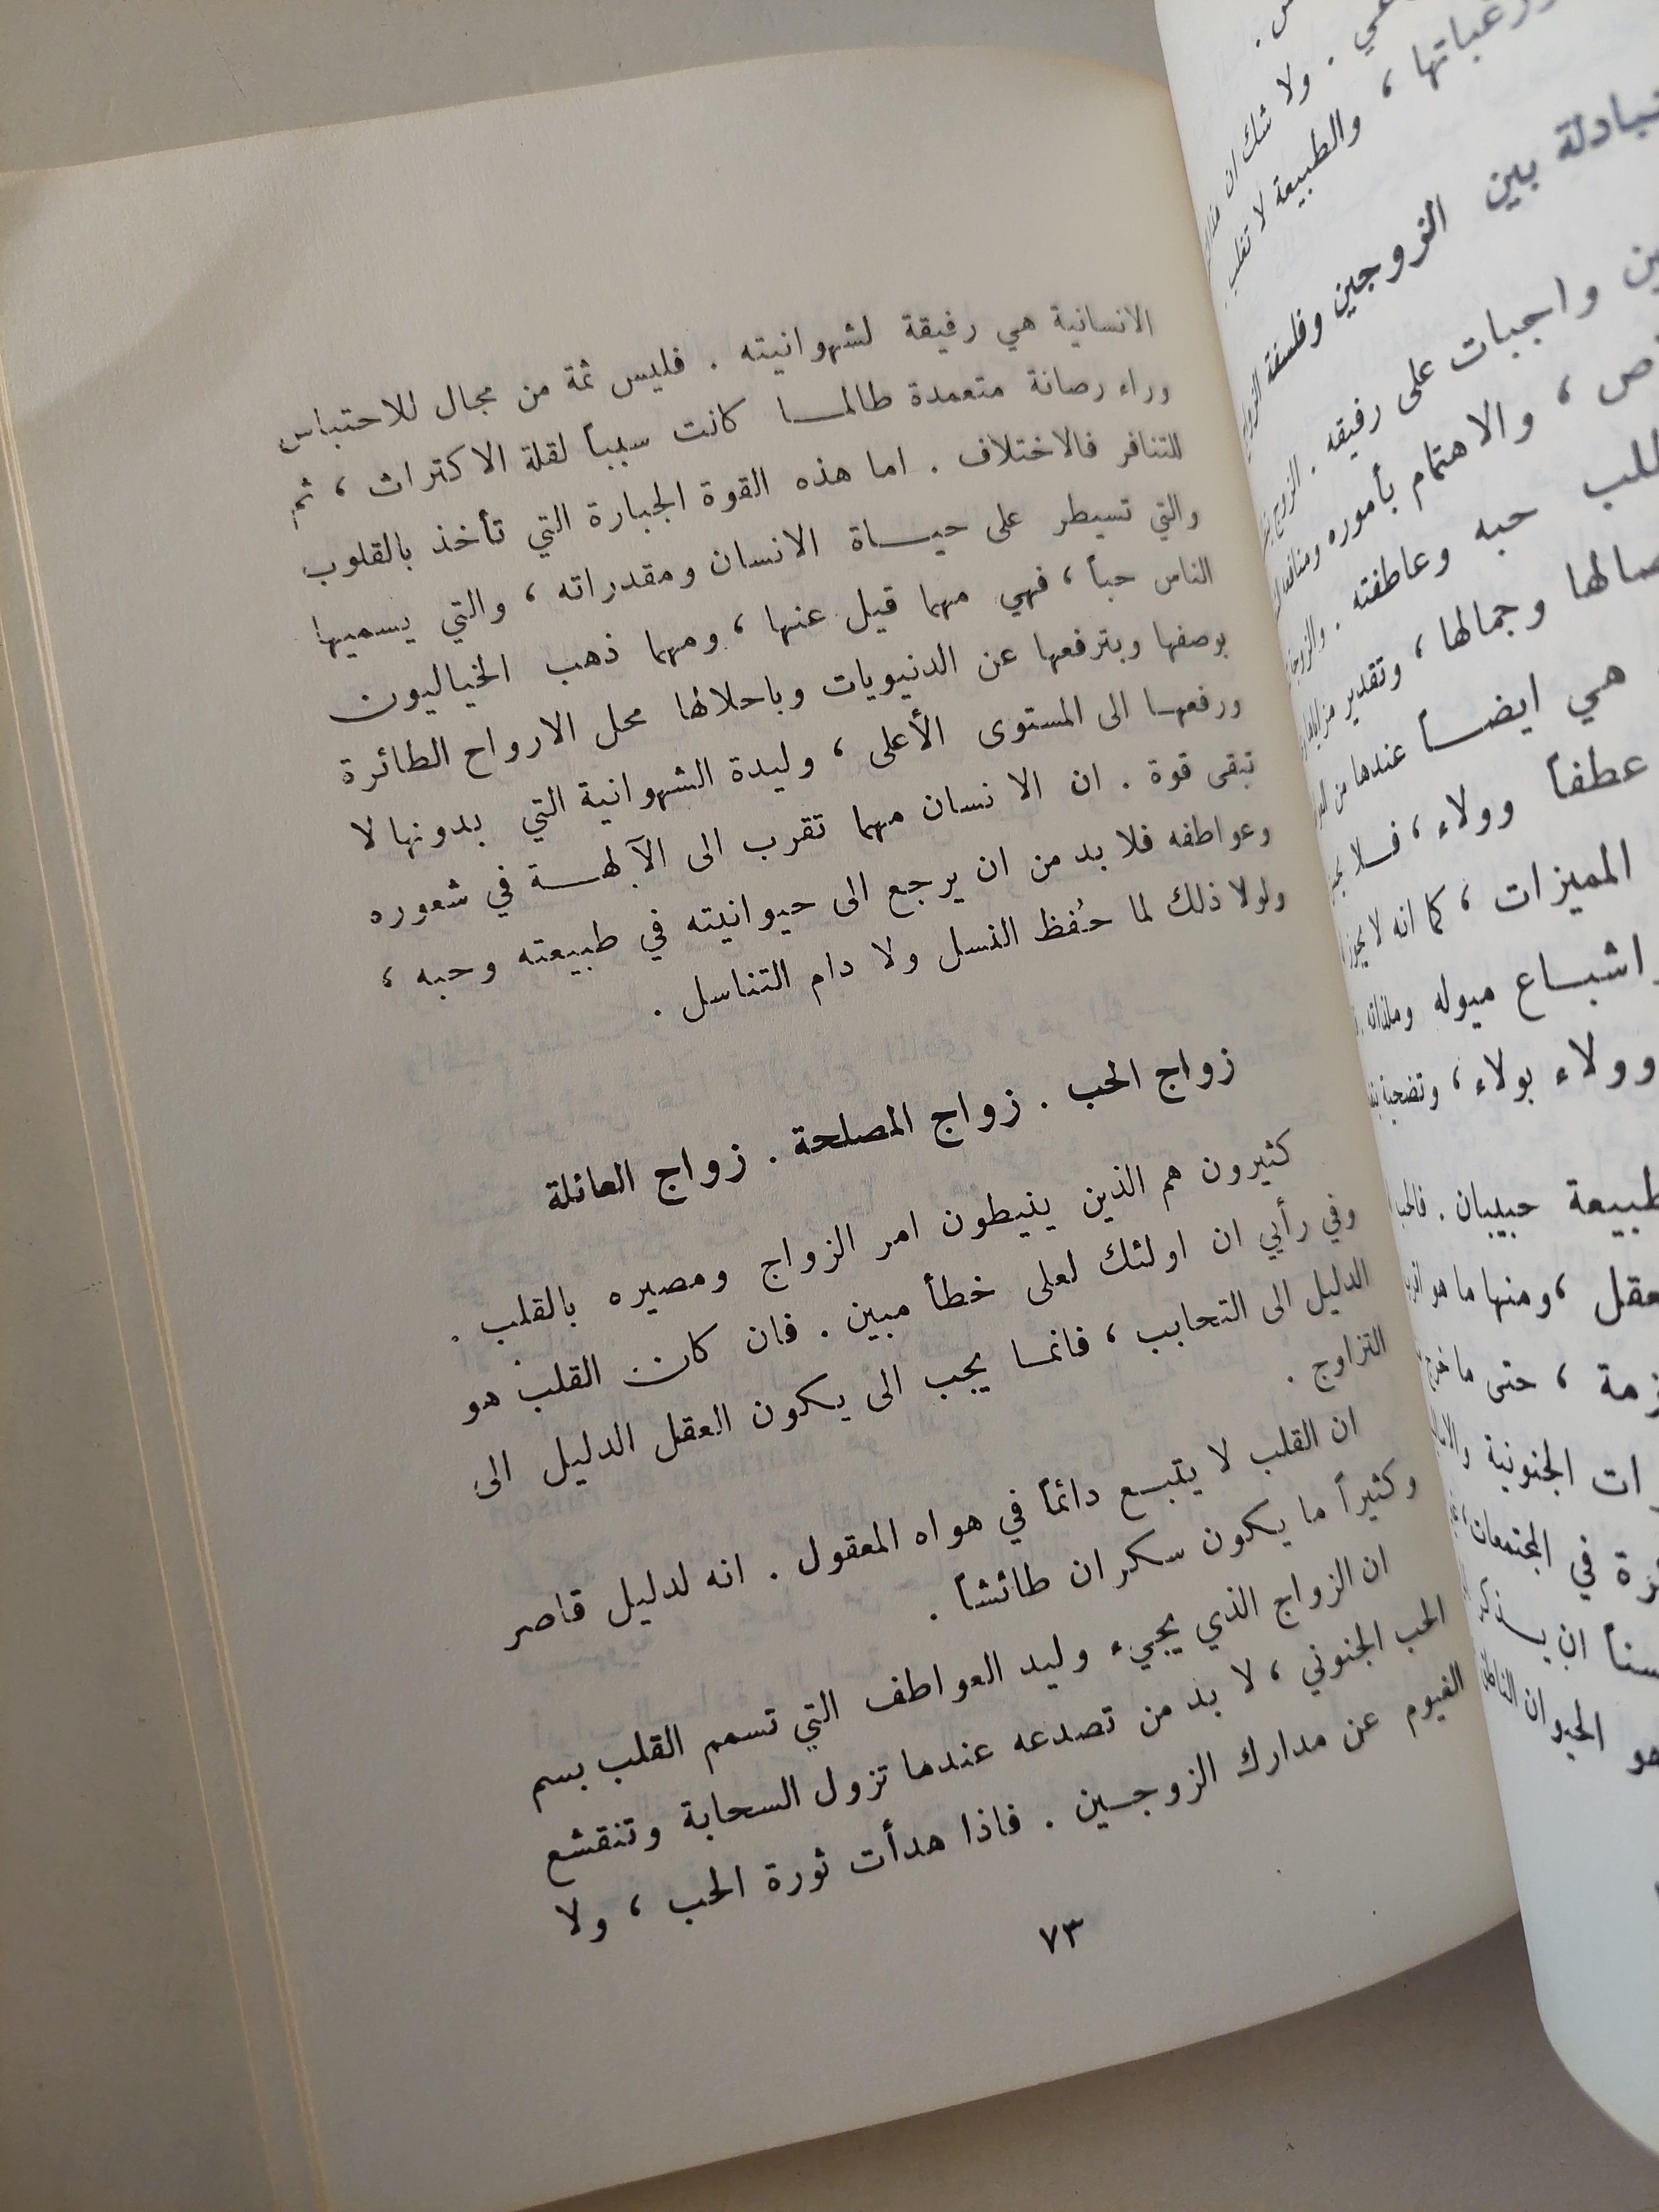 الانسانية هي رفيقة لشهوانيته . فليس ثمة من مجال للاحتباس
وراء رصانة متعمدة طالمــا كانت سبباً لقلة الاكتراث ، ثم
للتنافر فالاختلاف . اما هذه القوة الجبارة التي تأخذ بالقلوب
والتي تسيطر على حيــاة الانسان ومقدراته ، والتي يسميها
الناس حباً ، فهي مهما قيل عنها ، ومهما ذهب الخياليون
بوصفها وبترفعها عن الدنيويات وباحلالها محل الارواح الطائرة
ورفعهـا الى المستوى الأعلى ، وليدة الشهوانية التي بدونها لا
تبقى قوة . ان الانسان مهما تقرب الى الآلهــة في شعوره
وعواطفه فلا بد من ان يرجع الى حيوانيته في طبيعته وحبه ،
ولولا ذلك لما حُفظ النسل ولا دام التناسل .
زواج الحب . زواج المصلحة . زواج العائلة
كثيرون هم الذين ينيطون امر الزواج ومصيره بالقلب .
وفي رأيي ان اولئك لعلى خطأ مبين . فان كان القلب هو
الدليل الى التحابب ، فانمـا يجب الى يكون العقل الدليل الى
التزاوج .
ان القلب لا يتبـع دائماً في هواه المعقول . انه لدليل قاصر
وكثيراً ما يكون سكران طائشاً .
ان الزواج الذي يجيء وليد العواطف التي تسمم القلب بسم
الحب الجنوني ، لا بد من تصدعه عندما تزول السحابة وتنقشع
الغيوم عن مدارك الزوجـين . فاذا هدأت ثورة الحب ، ولا
٧٣
ولا شك ان
والطبيعة لا تغلب
بين الزوجين وفلسفة
واجبات على رفيقه . الزوج
، والاهتمام بأموره
حبه وعاطفته .
وجمالها ، وتقدير
هي ايضــاً عندها من
عطفاً وولاء ، فــلا
المميزات ، كما انه لا يجوز
اشبــاع ميوله وملذاته
وولاء بولاء ، وتضحية
حبيبان .
، ومنها ما هو
، حتى ما
الجنونية
في المجتمعات
ان
الحيوان الناطق